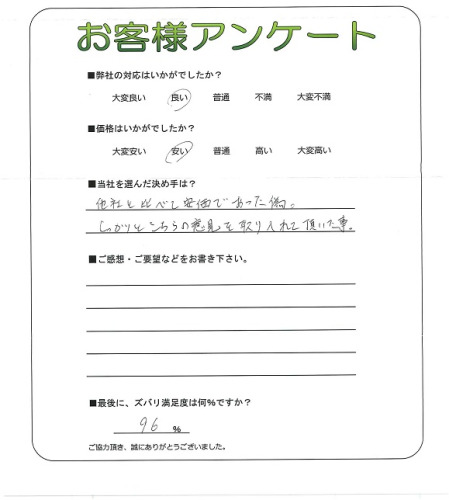 お客様アンケート
■弊社の対応はいかがでしたか？
大変良い 良い 普通 不満 大変不満
■価格はいかがでしたか？
大変安い 安い 普通 高い 大変高い
■当社を選んだ決め手は？
他社と比べて安価であった為。
しっかりとこちらの意見を取り入れて頂いた事。
■ご感想・ご要望などをお書き下さい。
■最後に、ズバリ満足度は何%ですか？
96 %
ご協力頂き、誠にありがとうございました。